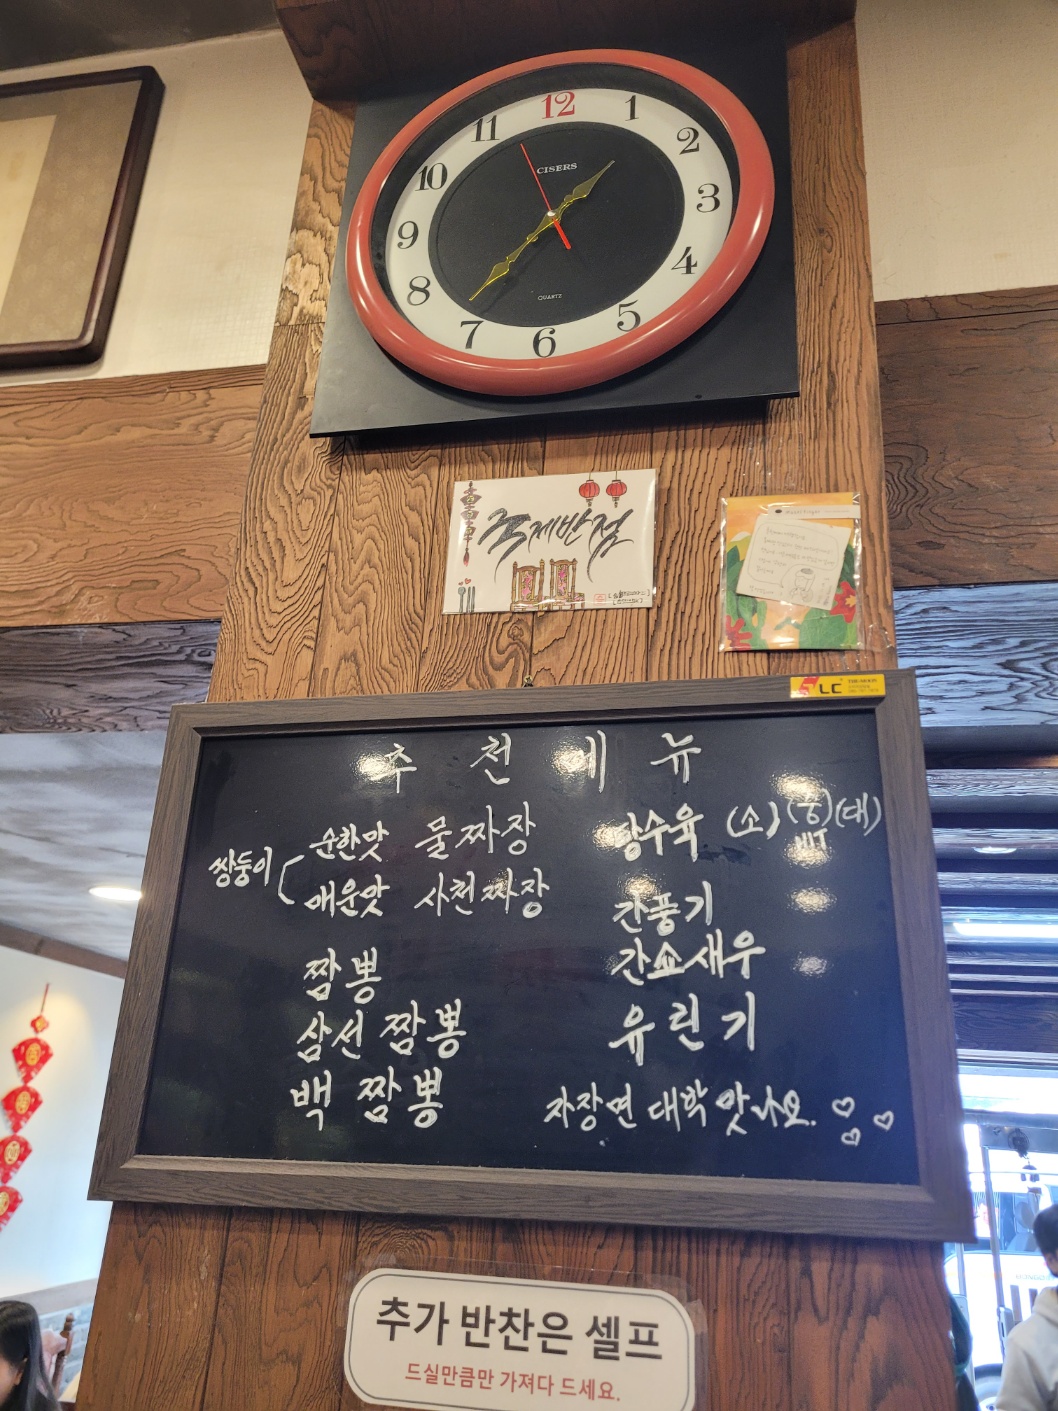 12
1
2
3
4
5
6
7
8
9
10
11
CISERS
QUARTZ
국제반점
LC
추천메뉴
쌍둥이
순한맛 물짜장
매운맛 사천짜장
짬뽕
삼선짬뽕
백짬뽕
탕수육 (소)(중)(대)
HIT
깐풍기
깐쇼새우
유린기
자장면 대학 맛나요.
추가 반찬은 셀프
드실만큼만 가져다 드세요.